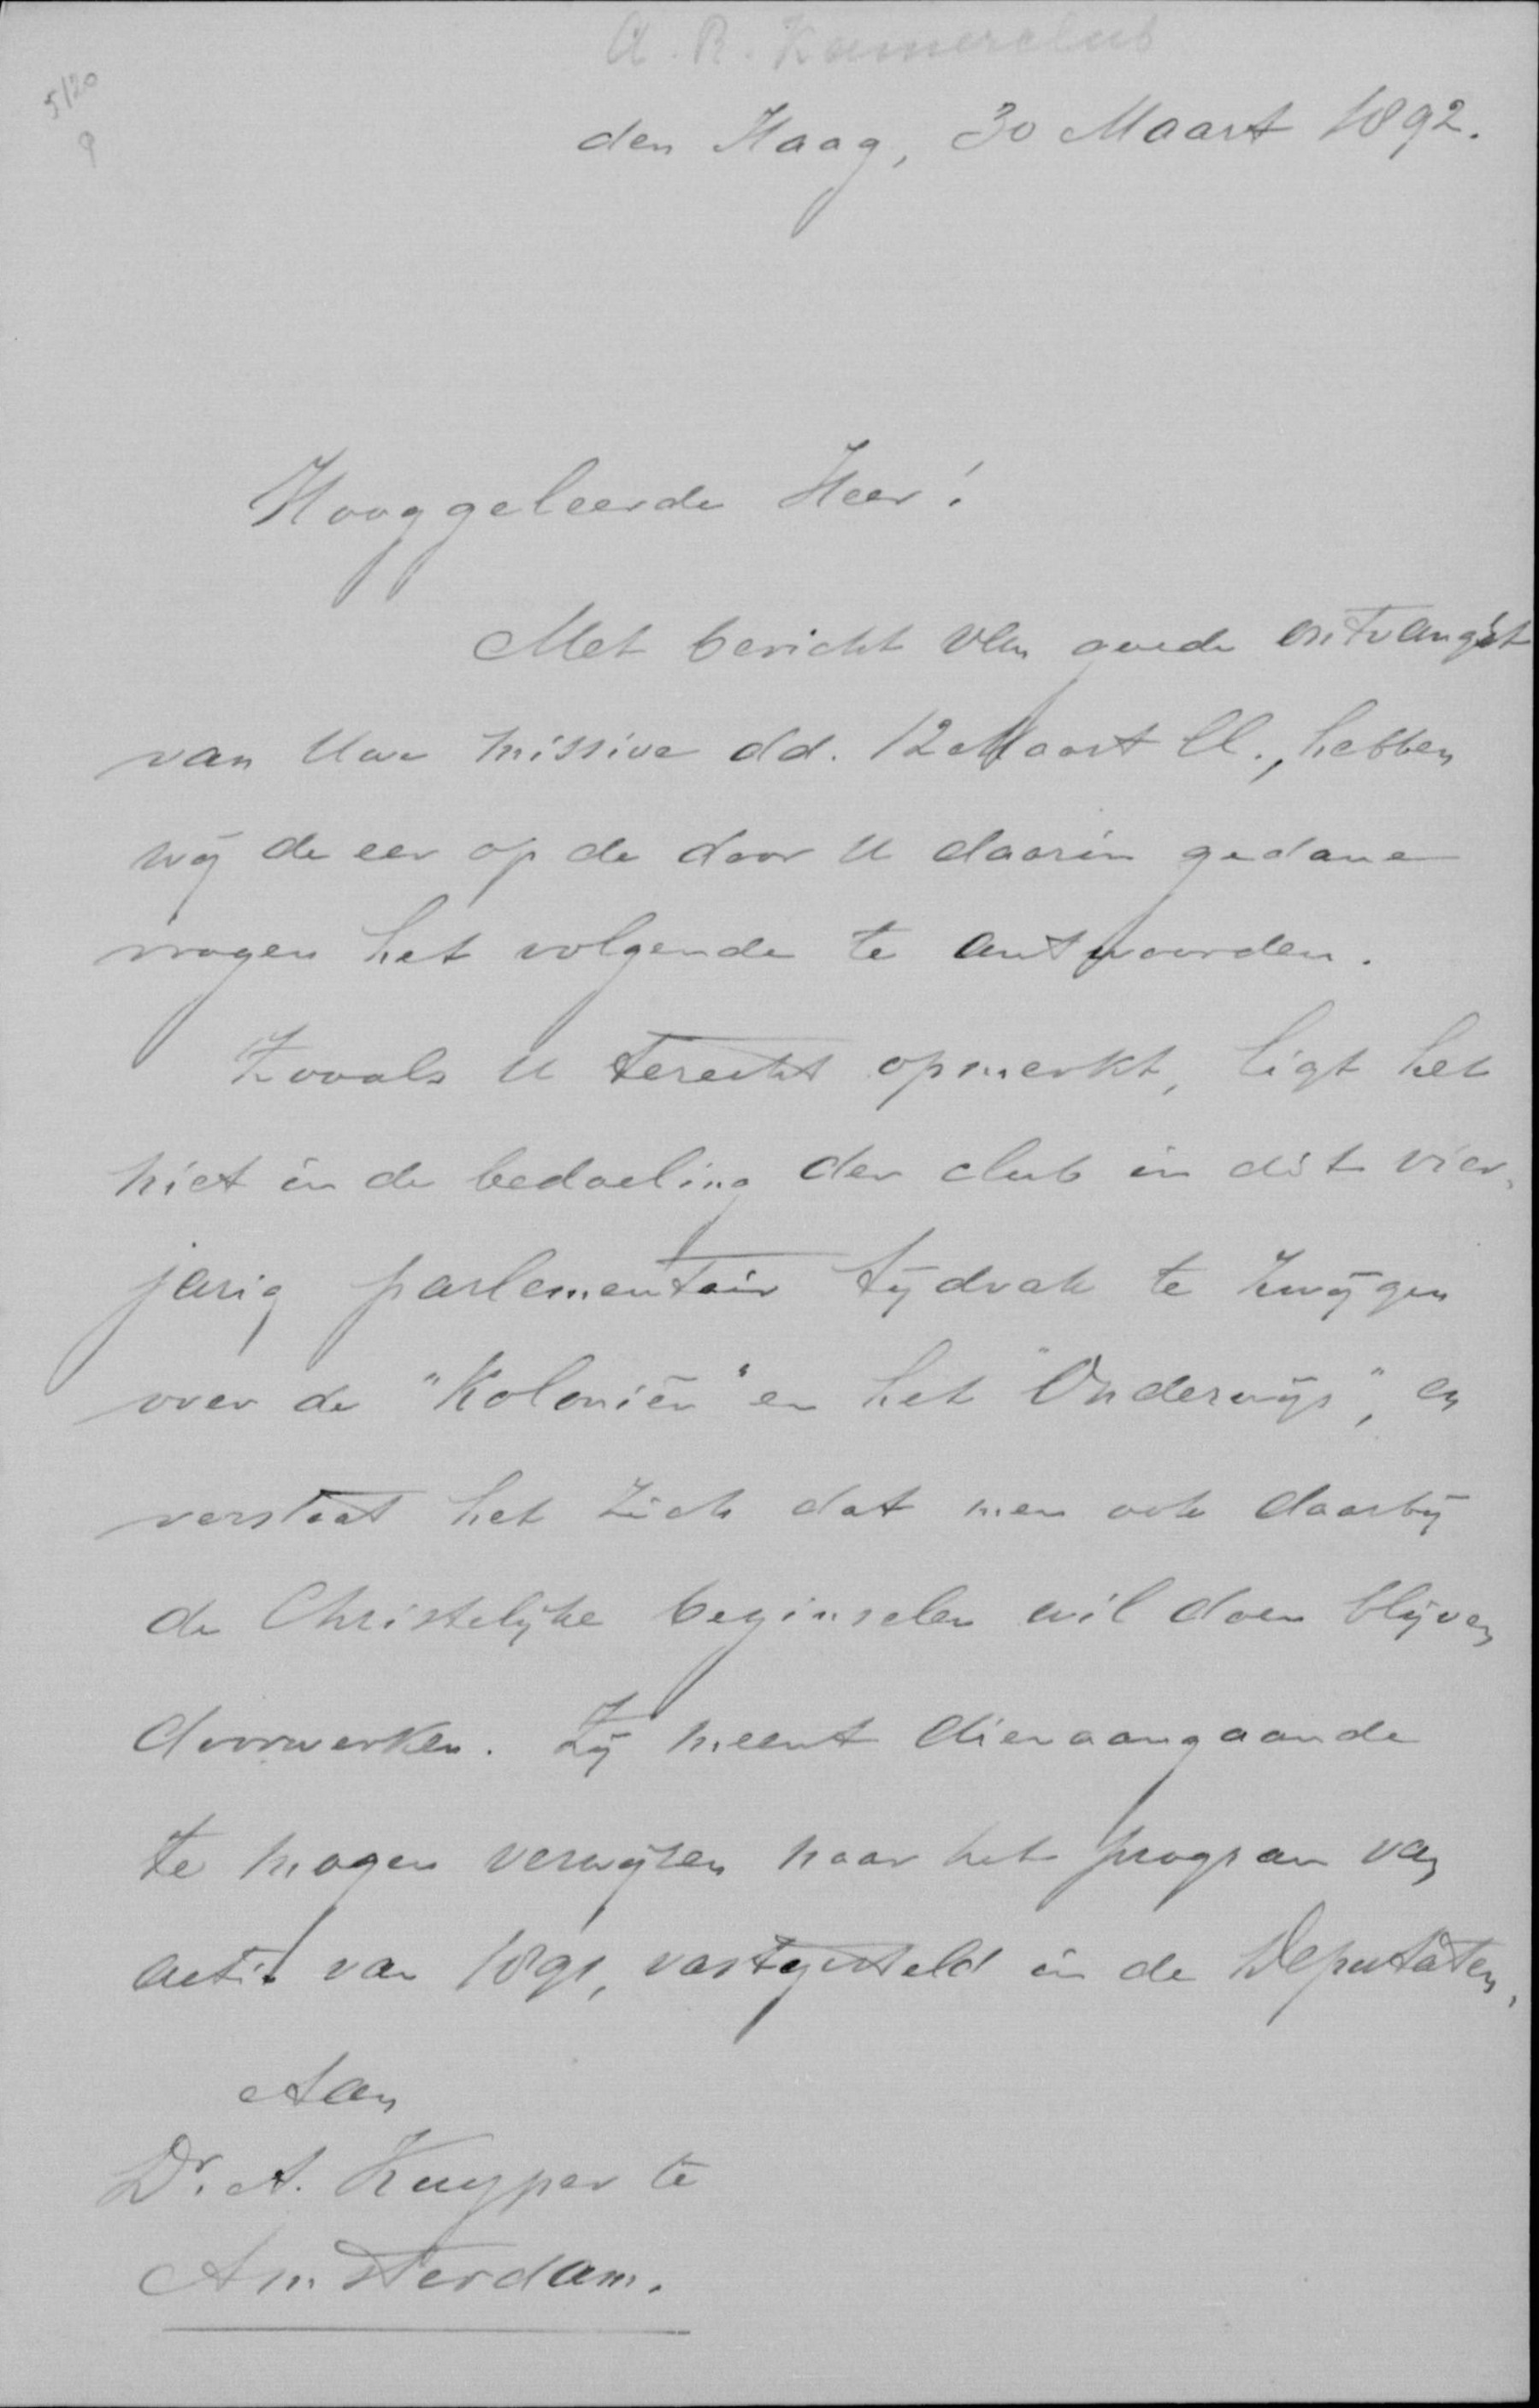 A. R. Kamerclub
5120
9
den Haag, 30 Maart 1892.
Hooggeleerde Heer!
Met bericht van goede ontvangst
van Uwe missive dd. 12 Maart ll., hebben
wij de eer op de door U daarin gedane
vragen het volgende te antwoorden.
Zooals U terecht opmerkt, ligt het
niet in de bedoeling der club in dit vier-
jarig parlementair tijdvak te zwijgen
over de "Koloniën" en het "Onderwijs", en
verstaat het zich dat men ook daarbij
de Christelijke beginselen wil doen blijven
doorwerken. Zij meent dienaangaande
te mogen verwijzen naar het program van
actie van 1891, vastgesteld in de Deputaten-
Aan
Dr. A. Kuyper te
Amsterdam.